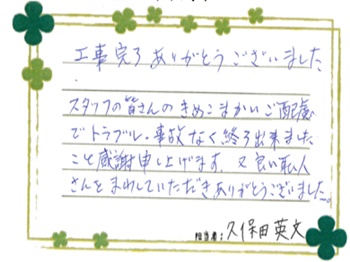 工事完了ありがとうございました
.
スタッフの皆さんのきめこまかいご配慮
でトラブル・事故なく終了出来ました
こと感謝申し上げます。又良い職人
さんをまわしていただきありがとうございました。
担当者:久保田英文